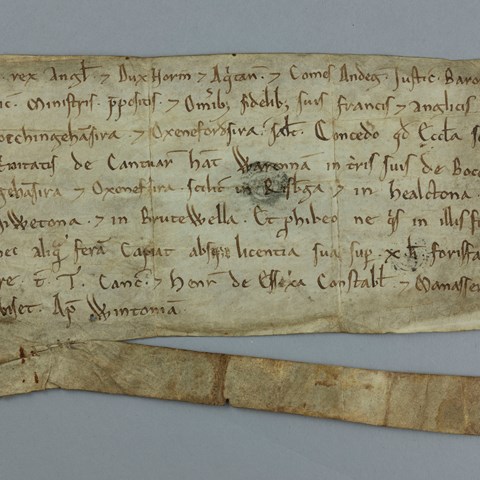 rex Angl' ⁊ Dux Norm ⁊ Aq̃tan̄ ⁊ Comes Andeg̃ Justic̃ Baro
Ministris p̃positis ⁊ Om̃ib; fidelib; suis Francis ⁊ Anglicis
occhingehãsira ⁊ Oxenefordsira. Sal̃t. Concedo qđ Eccl̃a
t̃nitatis de Cantuar̃ hãt Warennã in t̃ris suis de Bocc
gehãsira ⁊ Oxenef̃sira. scilic̃ in Risb̃ga ⁊ in healctona
Nwetona ⁊ in BruteWella. Et p̃hibeo ne q̃s in illis f
nec aliq̃ ferã Capiat absque licentia sua sup̃ .x. l̃i forisfa
re. t̃. T. Canc̃ ⁊ Henr̃ de Essexa Constabl̃ ⁊ Manasser
biset. Ap̃ Wintoniã.